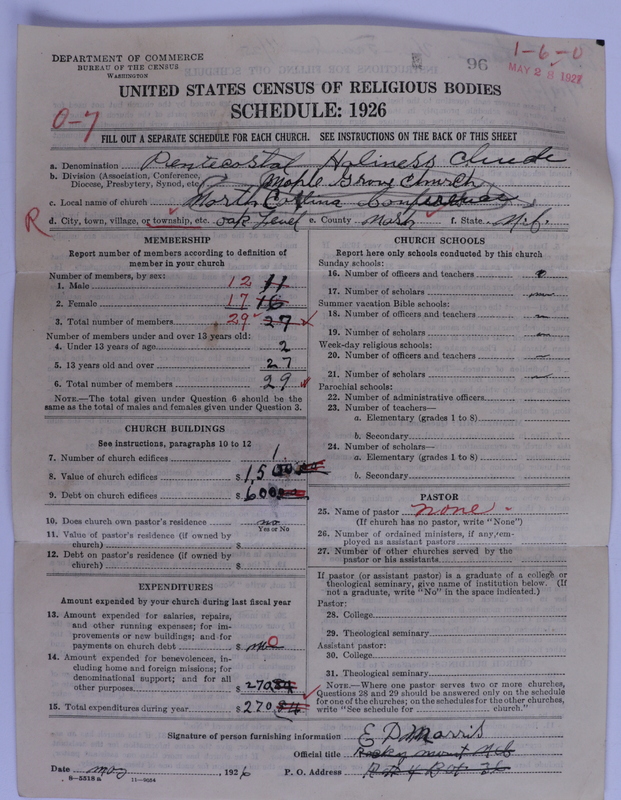 1-6-0
DEPARTMENT OF COMMERCE
BUREAU OF THE CENSUS
WASHINGTON
96
MAY 28 1927
UNITED STATES CENSUS OF RELIGIOUS BODIES
SCHEDULE: 1926
0-7
FILL OUT A SEPARATE SCHEDULE FOR EACH CHURCH. SEE INSTRUCTIONS ON THE BACK OF THIS SHEET
a. Denomination Pentecostal Holiness Church
b. Division (Association, Conference, Diocese, Presbytery, Synod, etc.) Maple Grove Church
c. Local name of church North Carolina Conference
R
d. City, town, village, or township, etc. Oak Level e. County Nash f. State N.C.
MEMBERSHIP
Report number of members according to definition of
member in your church
Number of members, by sex:
1. Male 12 11
2. Female 17 16
3. Total number of members 29 27
Number of members under and over 13 years old:
4. Under 13 years of age 2
5. 13 years old and over 27
6. Total number of members 29
NOTE.—The total given under Question 6 should be the
same as the total of males and females given under Question 3.
CHURCH BUILDINGS
See instructions, paragraphs 10 to 12
7. Number of church edifices 1
8. Value of church edifices $ 1,500
9. Debt on church edifices $ 600
10. Does church own pastor's residence no
Yes or No
11. Value of pastor's residence (if owned by
church) $
12. Debt on pastor's residence (if owned by
church) $
EXPENDITURES
Amount expended by your church during last fiscal year
13. Amount expended for salaries, repairs,
and other running expenses; for im-
provements or new buildings; and for
payments on church debt $ no 0
14. Amount expended for benevolences, in-
cluding home and foreign missions; for
denominational support; and for all
other purposes $ 270
15. Total expenditures during year $ 270
CHURCH SCHOOLS
Report here only schools conducted by this church
Sunday schools:
16. Number of officers and teachers
17. Number of scholars
Summer vacation Bible schools:
18. Number of officers and teachers
19. Number of scholars
Week-day religious schools:
20. Number of officers and teachers
21. Number of scholars
Parochial schools:
22. Number of administrative officers
23. Number of teachers—
a. Elementary (grades 1 to 8)
b. Secondary
24. Number of scholars—
a. Elementary (grades 1 to 8)
b. Secondary
PASTOR
25. Name of pastor none
(If church has no pastor, write "None")
26. Number of ordained ministers, if any, em-
ployed as assistant pastors
27. Number of other churches served by the
pastor or his assistants
If pastor (or assistant pastor) is a graduate of a college or
theological seminary, give name of institution below. (If
not a graduate, write "No" in the space indicated.)
Pastor:
28. College
29. Theological seminary
Assistant pastor:
30. College
31. Theological seminary
NOTE.—Where one pastor serves two or more churches,
Questions 28 and 29 should be answered only on the schedule
for one of the churches; on the schedules for the other churches,
write "See schedule for church."
Signature of person furnishing information E D Marris
Official title Rocky Mount N C
Date May, 1926 P. O. Address
8-5518a 11-9054